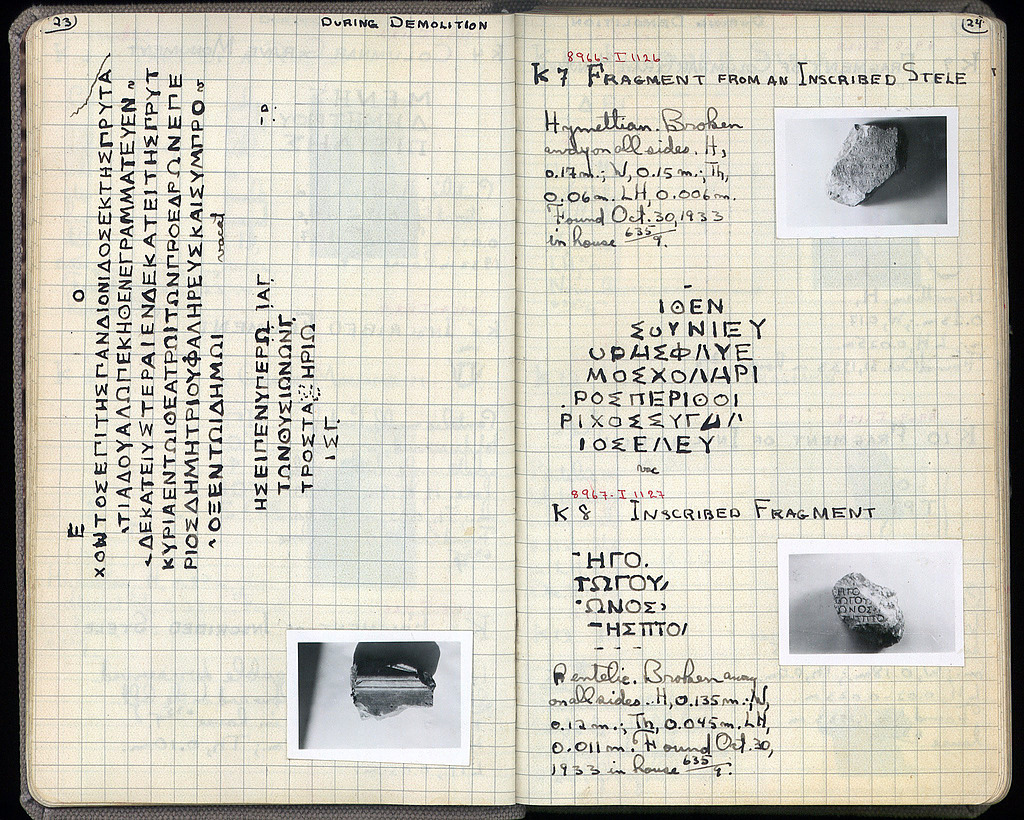 23
DURING DEMOLITION
Ε Ο
ΧΟΝΤΟΣΕΠΙΤΗΣΠΑΝΔΙΟΝΙΔΟΣΕΚΤΗΣΠΡΥΤΑ
ΤΙΑΔΟΥΑΛΩΠΕΚΗΘΕΝΕΓΡΑΜΜΑΤΕΥΕΝ
ΔΕΚΑΤΕΙΥΣΤΕΡΑΙΕΝΔΕΚΑΤΕΙΤΗΣΠΡΥΤ
ΚΥΡΙΑΕΝΤΩΙΘΕΑΤΡΩΙΤΩΝΠΡΟΕΔΡΩΝΕΠΕ
ΡΙΟΣΔΗΜΗΤΡΙΟΥΦΑΛΗΡΕΥΣΚΑΙΣΥΜΠΡΟ
ΟΞΕΝΤΩΙΔΗΜΩΙ vacat
ΗΣΕΙΠΕΝΥΠΕΡΩ ΙΑΓ
ΤΩΝΘΥΣΙΩΝΩΝΓ
ΤΡΟΣΤΑ ΗΡΙΩ
ΙΣΓ
24
8966 - I 1126
K 7 FRAGMENT FROM AN INSCRIBED STELE
Hymettian. Broken
away on all sides. H,
0.17m.; W, 0.15m.; Th,
0.06m. LH, 0.006m.
Found Oct. 30, 1933
in house 635/9.
ΙΘΕΝ
ΣΟΥΝΙΕΥ
ΜΟΣΧΟΛΗΡΙ
ΡΟΣΠΕΡΙΘΟΙ
ΡΙΧΟΣΣΥΓ
ΙΟΣΕΛΕΥ
vac
8967 - I 1127
K 8 INSCRIBED FRAGMENT
ΗΓΟ.
ΤΩΓΟΥ
ΩΝΟΣ
ΗΣΠΤΟ
Pentelic. Broken away
on all sides. H, 0.135m.; W,
0.12m.; Th, 0.045m. LH,
0.011m. Found Oct. 30,
1933 in house 635/9.